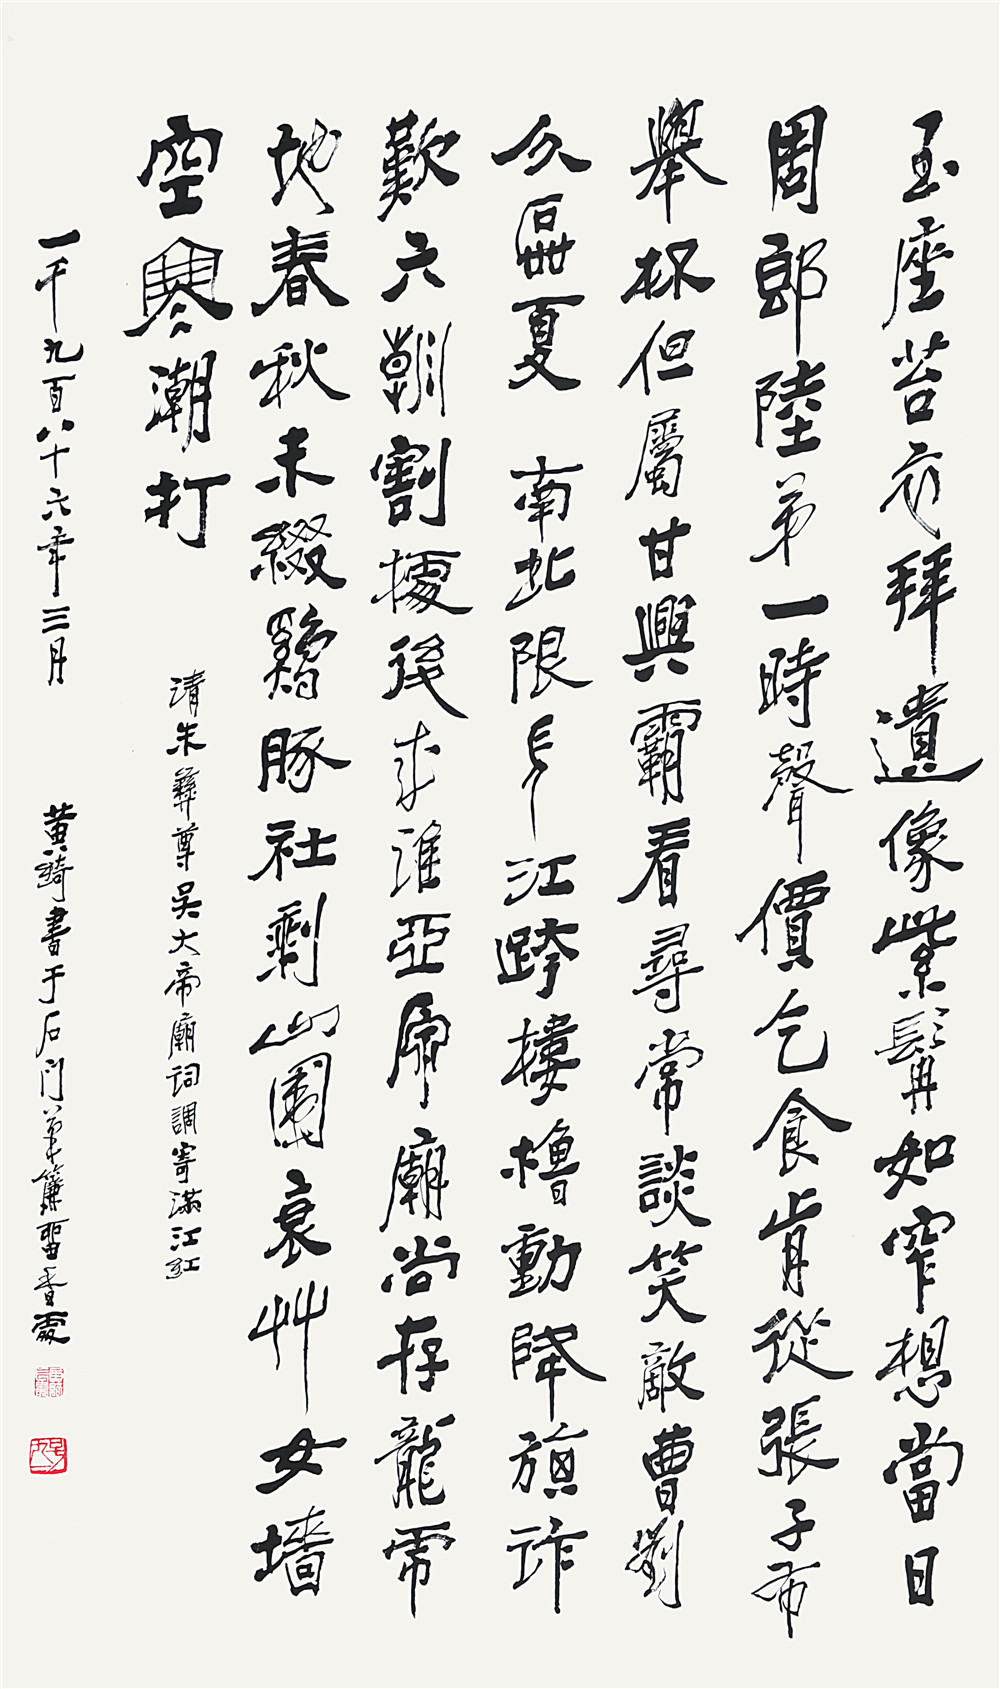 玉座苔衣拜遺像紫髯如窄想當日
周郎陸弟一時聲價乞食肯從張子布
舉杯但屬甘興霸看尋常談笑敵曹劉
分區夏 南北限長江跨樓櫓動降旗詐
歎六朝割據後來誰亞原廟尚存龍虎
地春秋未綴鷄豚社剩山圍衰艸女墻
空寒潮打
清朱彝尊吴大帝廟詞調寄滿江紅
一千九百八十六年三月 黄綺書于石門簾留香處